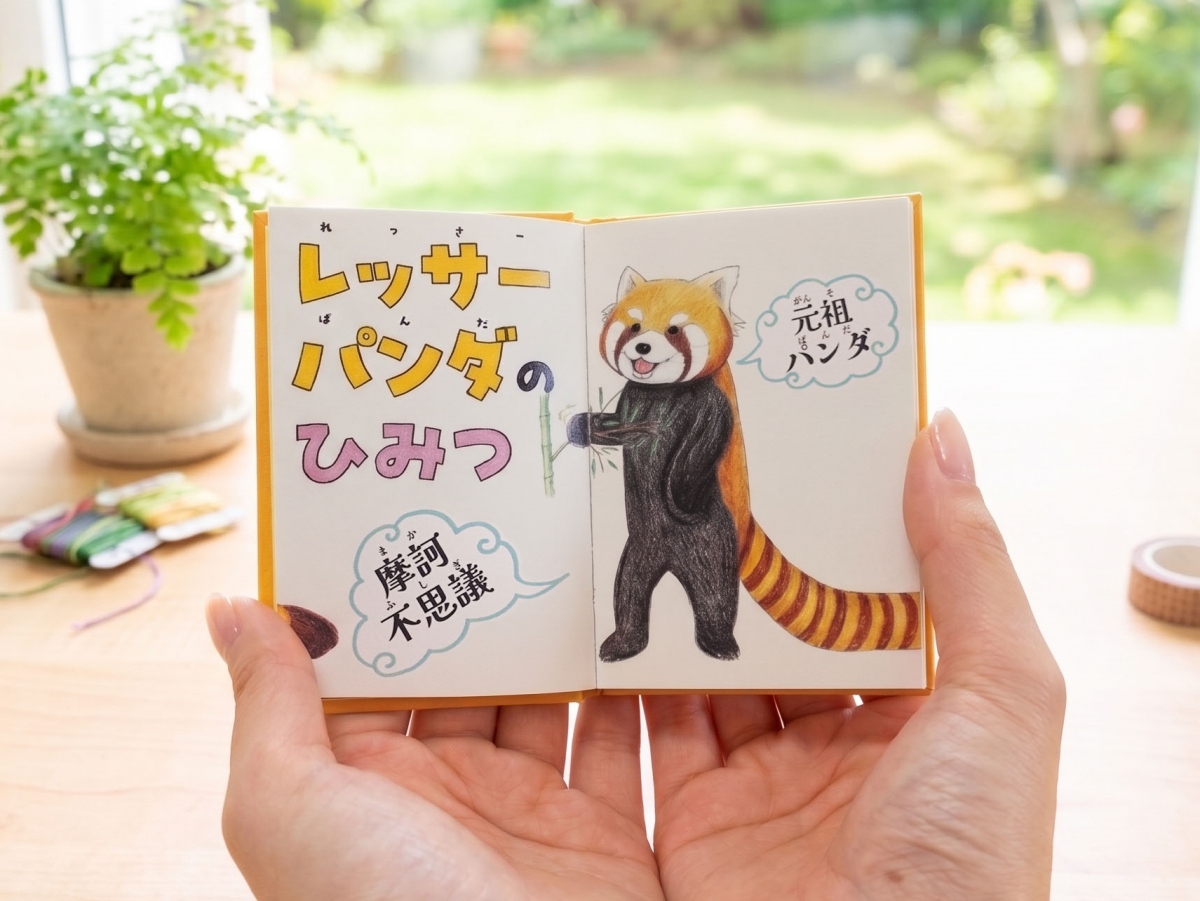 れっさー
レッサー
ぱんだ
パンダの
ひみつ
まか
摩訶
ふしぎ
不思議
がんそ
元祖
ぱんだ
パンダ